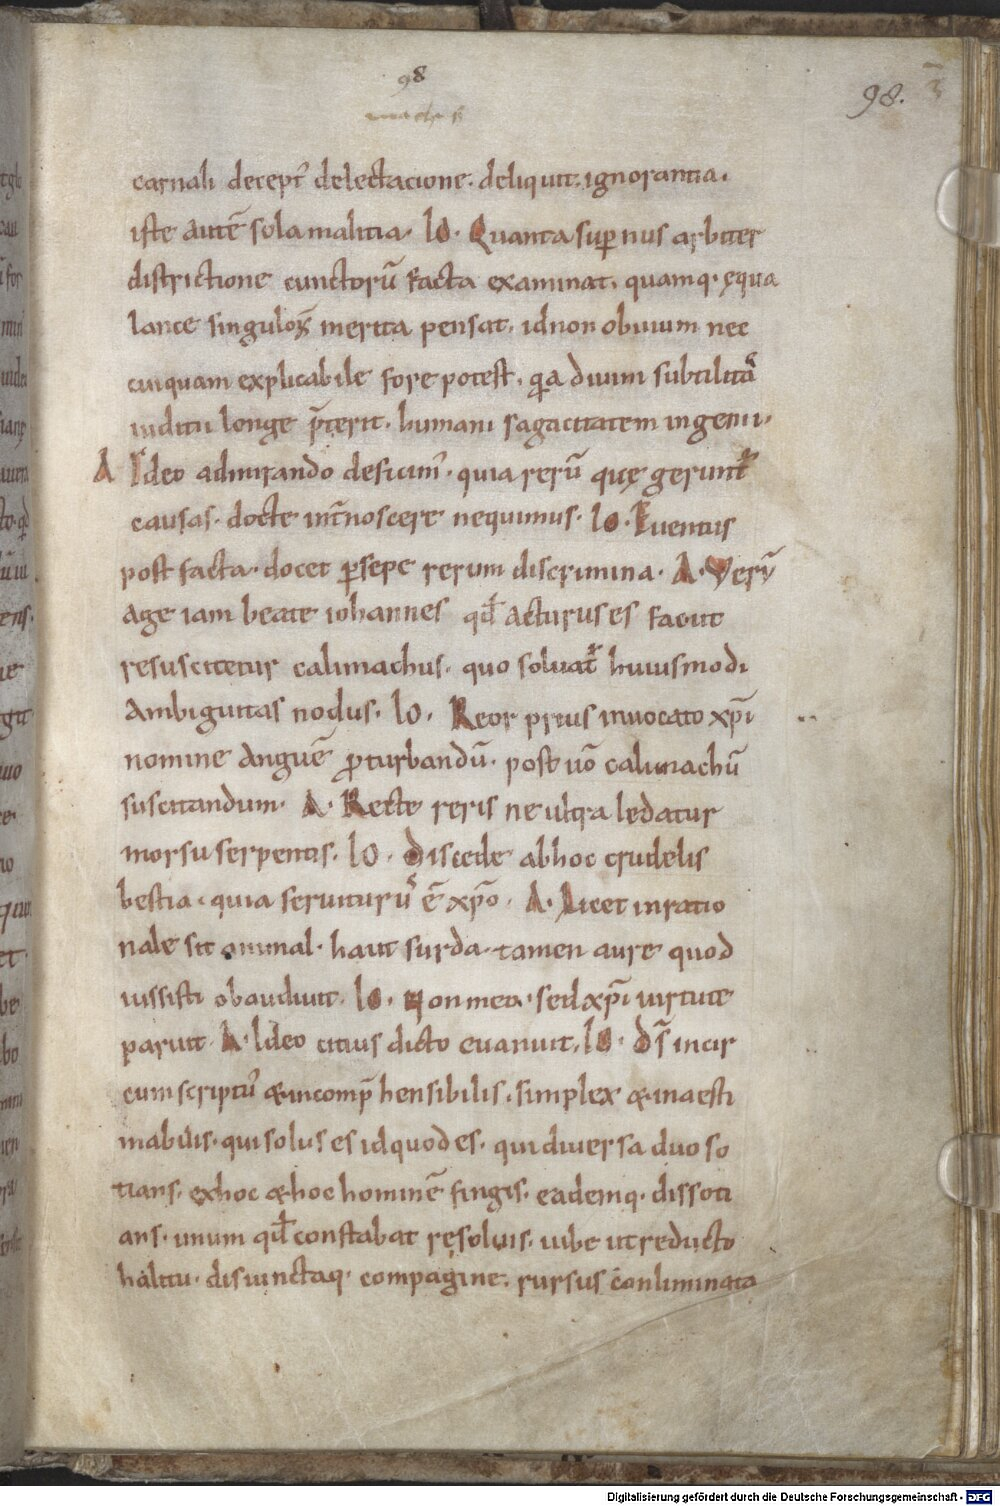 98
98.
carnali decept᷒ delectacione. deliquit. ignorantia.
iste autē sola malitia. IO. Quanta sup̱nus arbiter
districtione cunctorū facta examinat. quamq. ęqua
lance singuloꝝ merita pensat. id non obuium nec
cuiquam explicabile fore potest. q̣a diuini subtilitas
iuditii longe p̄terit. humani sagacitatem ingenii.
A Ideo admirando deficim᷒. quia rerū quę gerunt᷑
causas. docte int̄noscere nequimus. IO. Euentus
post facta. docet ꝑsepe rerum discrimina. A. Verū
age iam beate iohannes qd̄ acturus es facut
resuscitetur calimachus. quo soluat᷑ huiusmodi
ambiguitas nodus. IO. Reor prius inuocato xp̄i
nomine anguē ꝓturbandū. post uō calimachū
suscitandum. A. Recte reris ne ultra ledatur
morsu serpentis. IO. Discede ab hoc crudelis
bestia. quia seruiturus ē xp̄o. A. Licet inratio
nale sit animal. haut surda. tamen aure quod
iussisti obaudiuit. IO. Non mea. sed xp̄i uirtute
paruit. A. Ideo citius dicto euanuit. IO. Ds̄ incir
cumscript᷒ & incomp̄hensibilis. simplex & inaesti
mabilis. qui solus es id quod es. qui diuersa duo so
tians. ex hoc & hoc hominē fingis. eademq. dissoti
ans. unum qd̄ constabat resoluis. iube ut reducto
halitu. disiunctaq. compagine. rursus conliminata
Digitalisierung gefördert durch die Deutsche Forschungsgemeinschaft - DFG